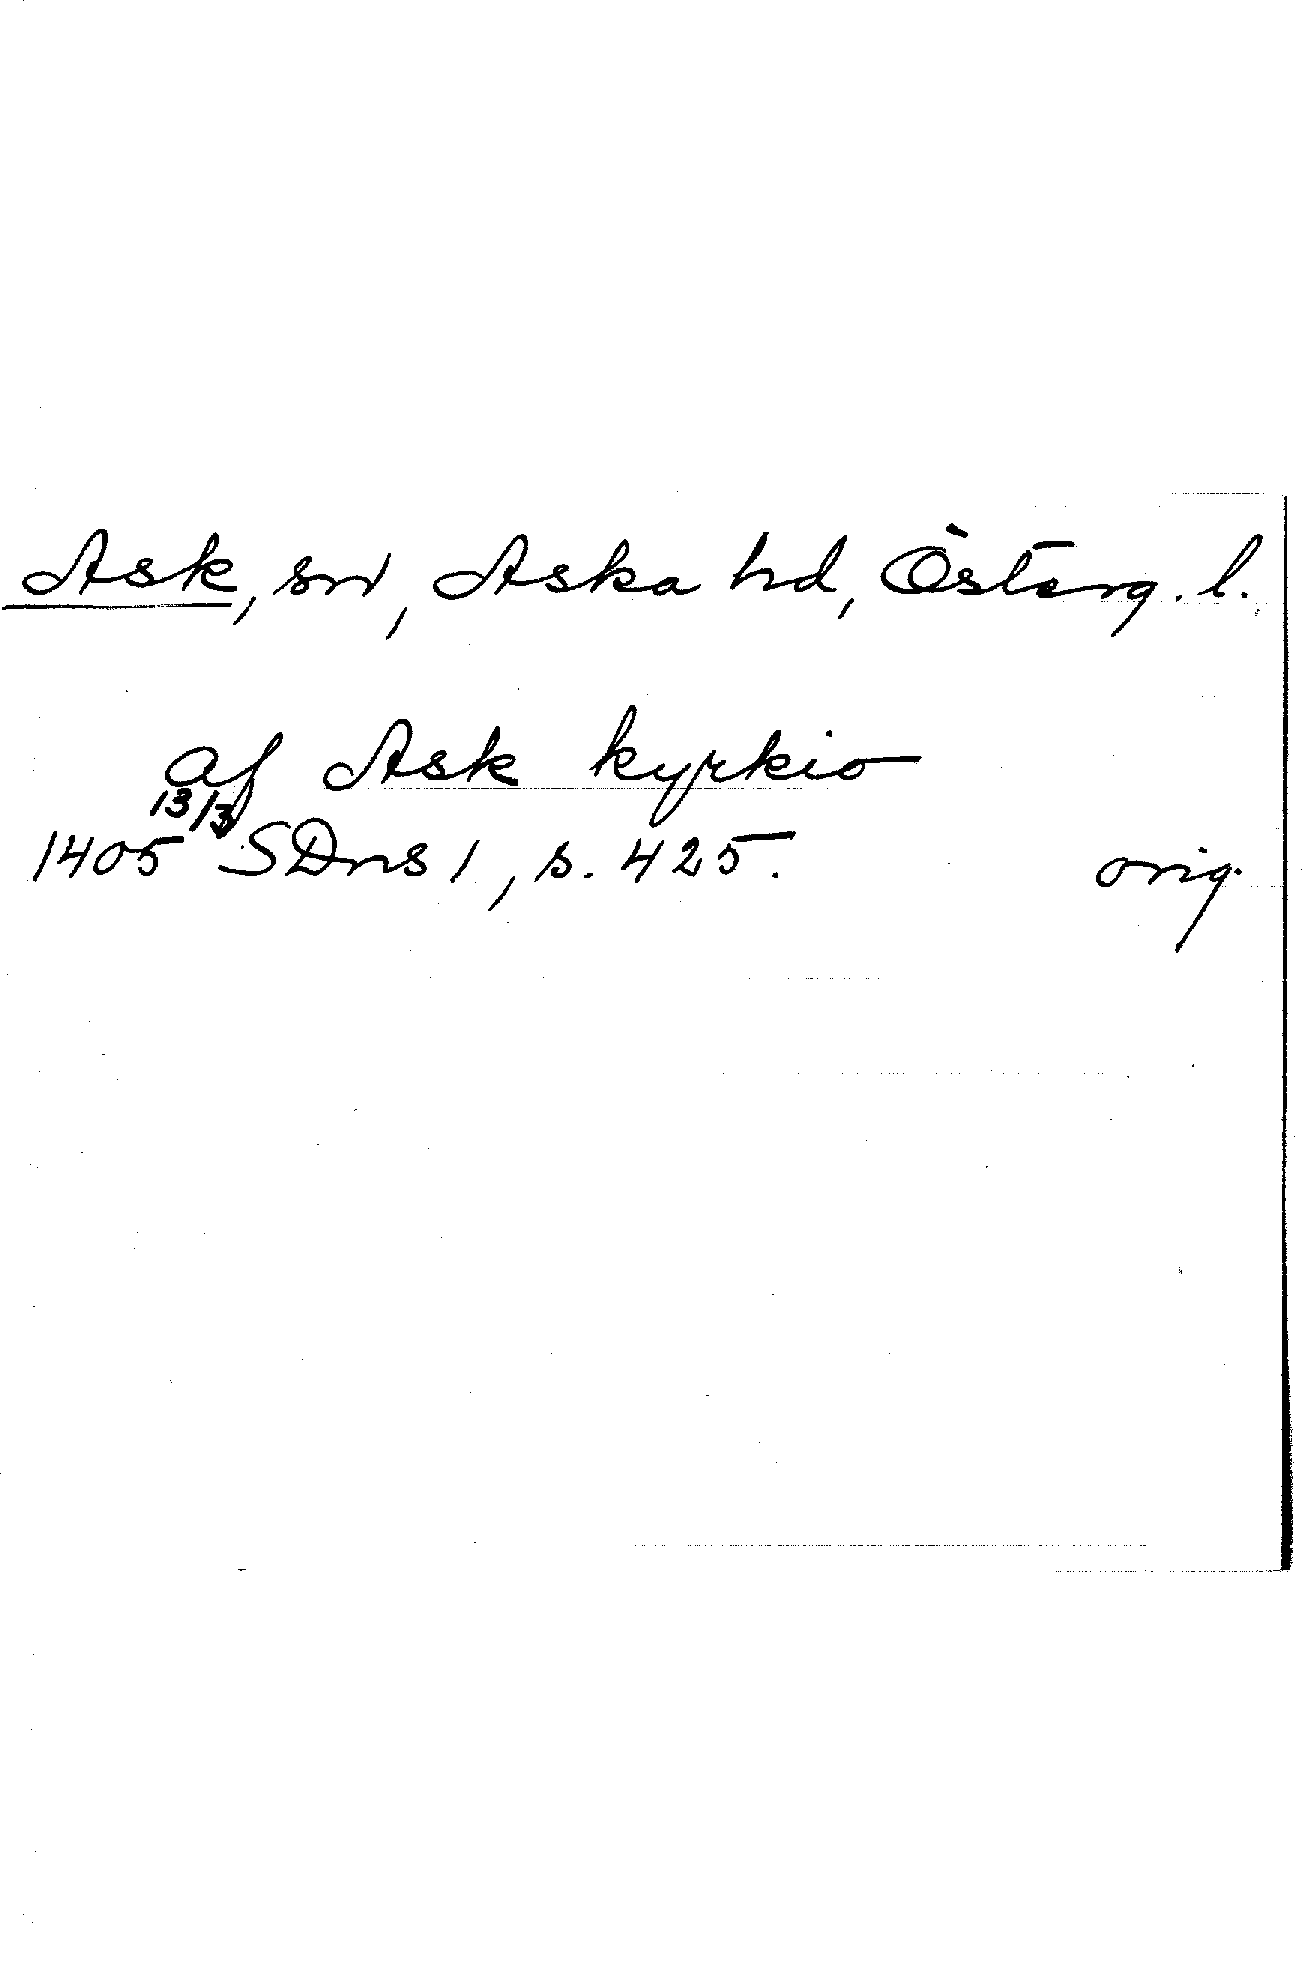 Ask, sn, Aska hd, Österg. l.
af Ask kyrkio
1405 13/3 SDns 1, s. 425. orig.